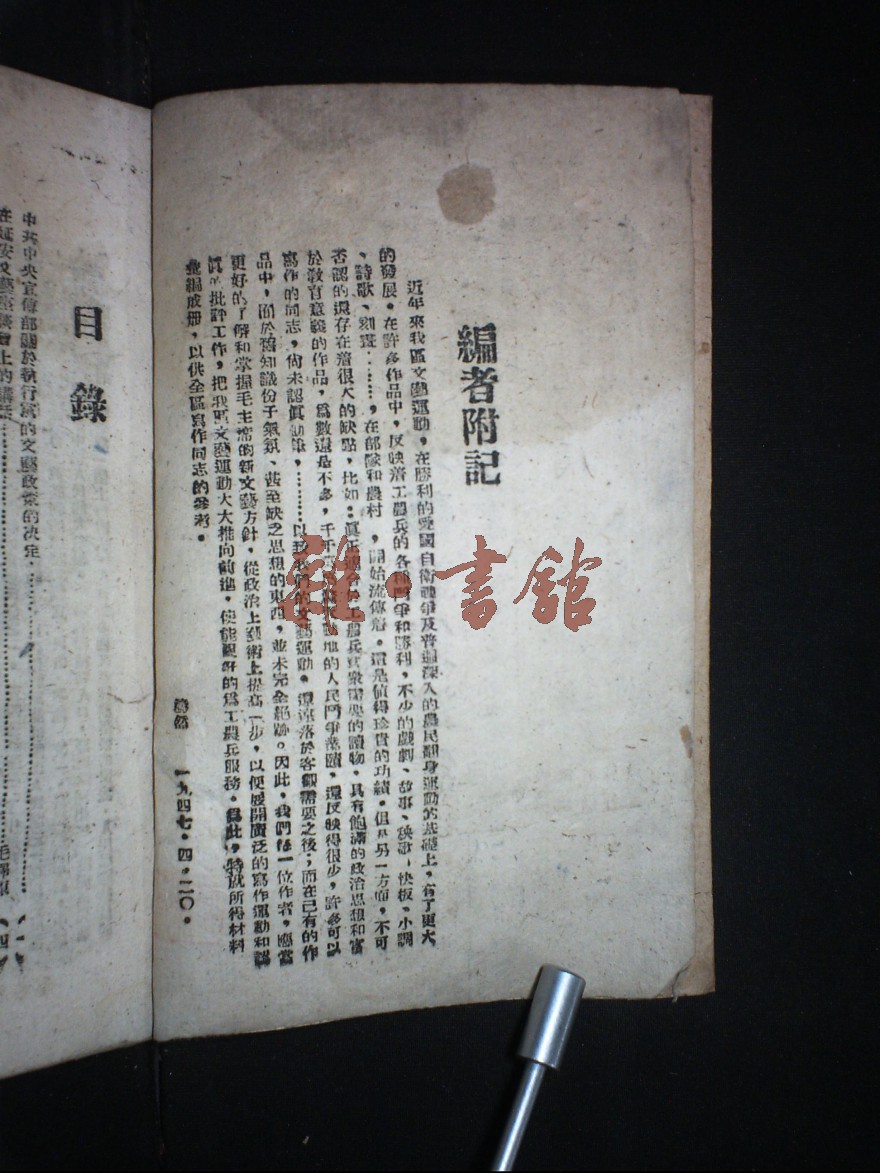 編者附記
近年來我區文藝運動，在勝利的愛國自衛戰爭及普遍深入的農民翻身運動的基礎上，有了更大
的發展。在許多作品中，反映着工農兵的各種鬥爭和勝利，不少的戲劇、故事、秧歌、快板、小調
、詩歌、刻畫……，在部隊和農村，開始流傳着。這是值得珍貴的功績。但是另一方面，不可
否認的還存在着很大的缺點，比如：眞正適合於工農兵羣衆需要的讀物，具有飽滿的政治思想和富
於教育意義的作品，爲數還是不多，千千地的人民鬥爭業蹟，還反映得很少，許多可以
寫作的同志，尙未認眞動筆，………以致我們的文藝運動，還遠落於客觀需要之後；而在已有的作
品中，關於舊知識份子氣氛、甚至缺乏思想的東西，並未完全絕跡。因此，我們每一位作者，應當
更好的了解和掌握毛主席的新文藝方針，從政治上藝術上提高一步，以便展開廣泛的寫作運動和認
眞的批評工作，把我區文藝運動大大推向前進，使能更好的爲工農兵服務。爲此，特就所得材料
彙編成册，以供全區寫作同志的參考。
一九四七・四・二〇・
目錄
中共中央宣傳部關於執行黨的文藝政策的决定
在延安文藝座談會上的講話
雜・書館